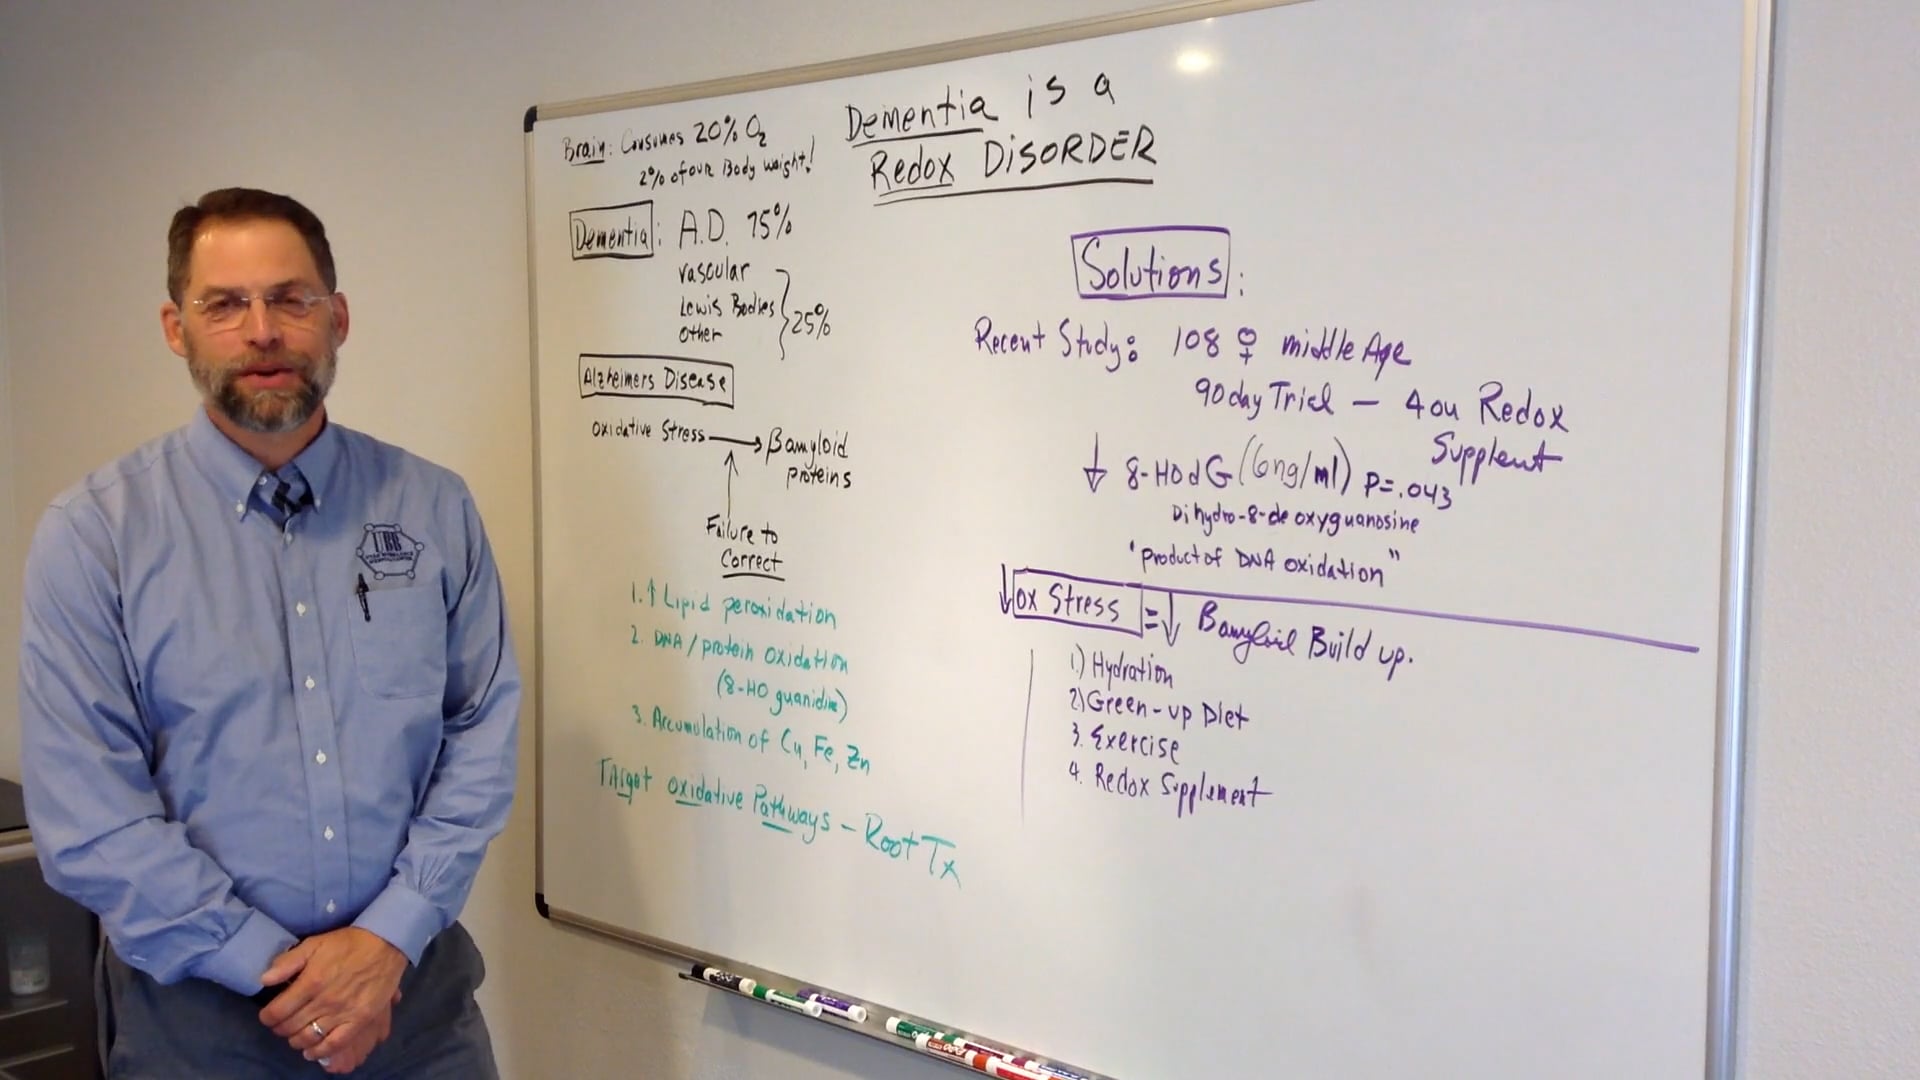 Dementia is a
Redox DISORDER
Brain: Consumes 20% O₂
2% of our Body weight!
Dementia: A.D. 75%
vascular
Lewis Bodies
other
25%
Alzheimers Disease
Oxidative Stress → βamyloid
proteins
Failure to
Correct
1. ↑ Lipid peroxidation
2. DNA / protein oxidation
(8-HO guanidine)
3. Accumulation of Cu, Fe, Zn
Target oxidative Pathways – Root Tx
Solutions:
Recent Study: 108 ♀ middle Age
90 day Trial – 4 ou Redox
Supplent
↓ 8-HOdG (6ng/ml) P=.043
Dihydro-8-deoxyguanosine
"product of DNA oxidation"
↓ ox Stress = ↓ Bamyloid Build up.
1.) Hydration
2) Green-up Diet
3. Exercise
4. Redox Supplement
UBB